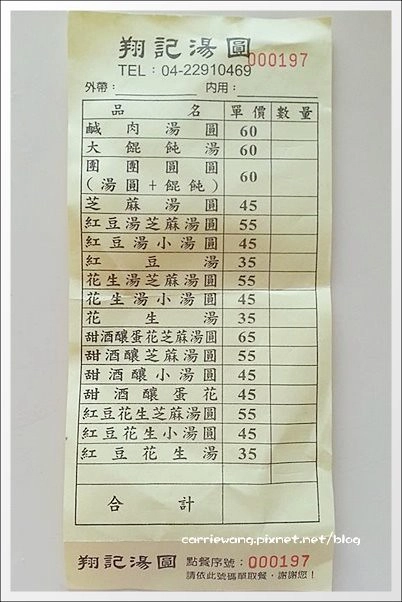 翔記湯圓
000197
TEL：04-22910469
外帶：　　　　內用：
品名 單價 數量
鹹肉湯圓 60
大餛飩湯 60
團團圓圓
（湯圓＋餛飩） 60
芝麻湯圓 45
紅豆湯芝麻湯圓 55
紅豆湯小湯圓 45
紅豆湯 35
花生湯芝麻湯圓 55
花生湯小湯圓 45
花生湯 35
甜酒釀蛋花芝麻湯圓 65
甜酒釀芝麻湯圓 55
甜酒釀小湯圓 45
甜酒釀蛋花 45
紅豆花生芝麻湯圓 55
紅豆花生小湯圓 45
紅豆花生湯 35
合計
carriewang.pixnet.net/blog
翔記湯圓 點餐序號：000197
請依此號碼單取餐，謝謝您！